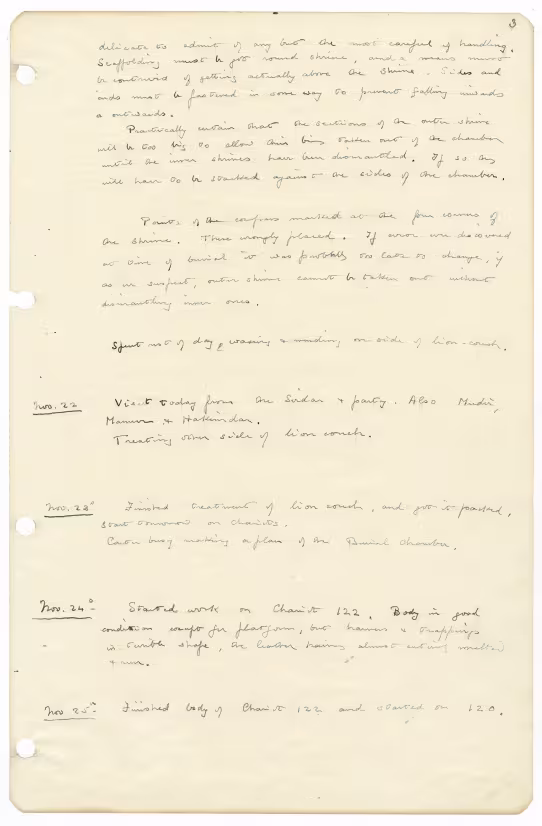 3
delicate to admit of any but the most careful of handling.
Scaffolding must be got round shrine, and a means must
be contrived of getting actually above the shrine. Sides and
ends must be fastened in some way to prevent falling inwards
or outwards.
Practically certain that the sections of the outer shrine
will be too big to allow their being taken out of the chamber
until the inner shrines have been dismantled. If so they
will have to be stacked against the sides of the chamber.
Points of the compass marked at the four corners of
the shrine. These wrongly placed. If error were discovered
at time of burial it was probably too late to change, if
as we suspect, outer shrine cannot be taken out without
dismantling inner ones.
Spent rest of day waxing & mending one side of lion-couch.
Nov. 22 Visit today from the Sirdar & party. Also Mudir,
Mamur & Hakimdar.
Treating other side of lion couch.
Nov. 23rd Finished treatment of lion couch, and got it packed,
start tomorrow on Chariots.
Carter busy making a plan of the Burial Chamber.
Nov. 24th Started work on Chariot 122. Body in good
condition except for platform, but harness & trappings
in terrible shape, the leather having almost entirely melted
& run.
Nov 25th Finished body of Chariot 122 and started on 120.